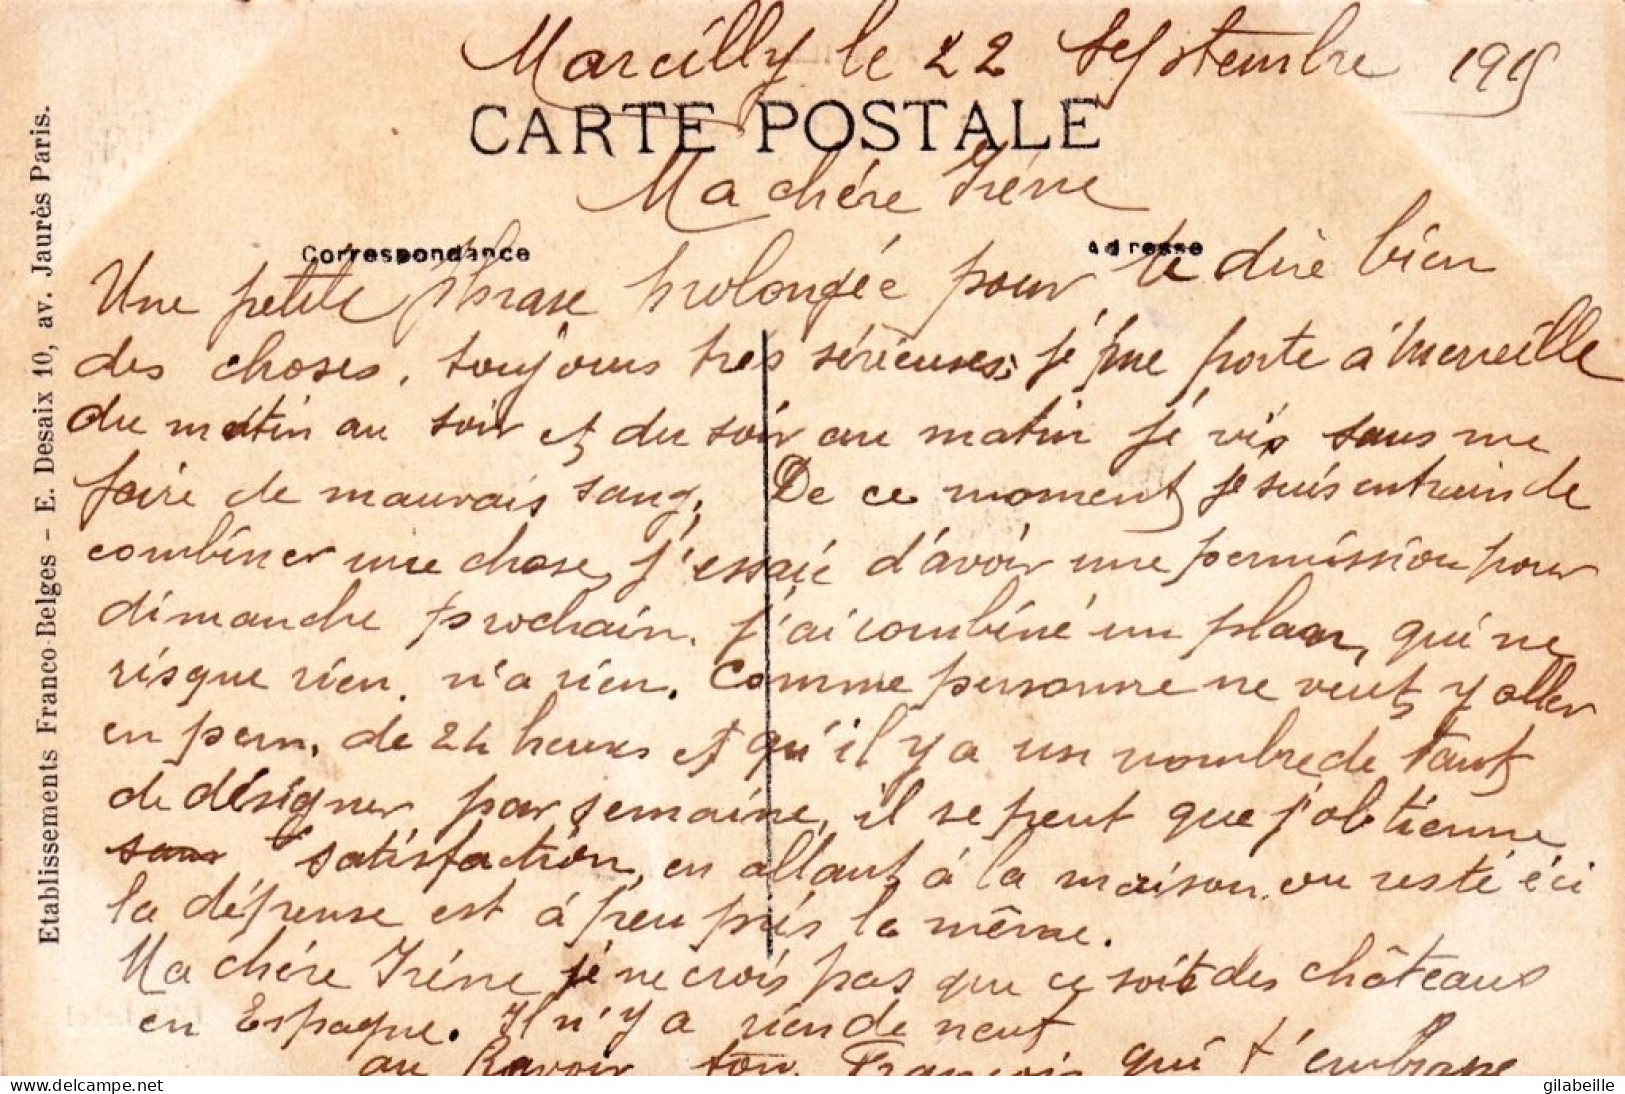 Marcilly le 22 Septembre 1915
CARTE POSTALE
Ma chére Iréne
Correspondance
Adresse
Une petite Phrase prolongée pour te dire bien
des choses. toujours tres sérieuses; je me porte á merveille
du matin au soir et du soir au matin je vis sans me
faire de mauvais sang. De ce moment je suis entrain de
combiner une chose, j'essaie d'avoir une permission pour
dimanche prochain. j'ai combiné un plan, qui ne
risque rien. n'a rien. Comme personne ne veut y aller
en perm. de 24 heures et qu'il y a un nombre de tant
de désigner par semaine, il se peut que j'obtienne
sans satisfaction, en allant á la maison ou resté ici
la dépense est á peu prés la même.
Ma chére Iréne je ne crois pas que ce soit des châteaux
en Espagne. Il n'y a rien de neuf
au Revoir ton François qui t'embrasse
Etablissements Franco-Belges - E. Desaix 10, av. Jaurès Paris.
delcampe.net
gilabeille